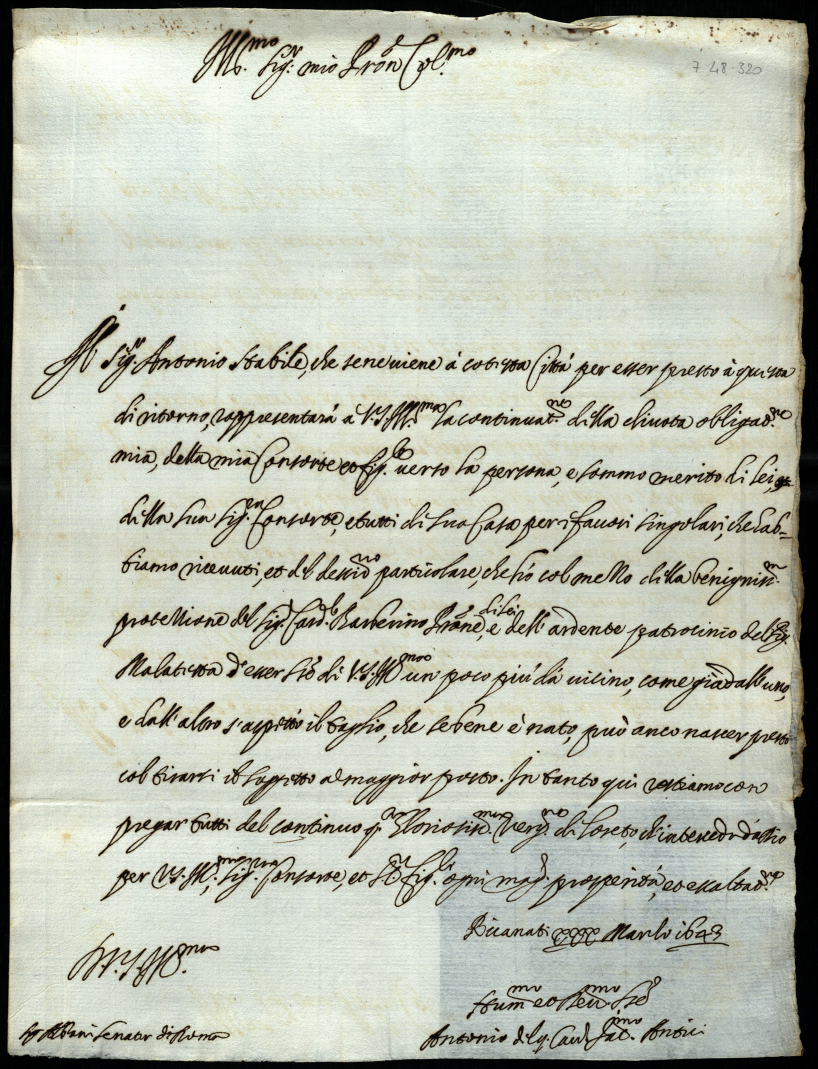 Ill.mo Sig.r mio P'ron Col.mo
7-48-320
Il Sig.r Antonio Stabile, che sene viene à cotesta Città per esser presto à questa
di ritorno, rappresentarà a V.S. Ill.ma la continuat.ne della divota obligat.ne
mia, della mia Consorte et fig.li verso la persona, e sommo merito di lei, et
della sua Sig.ra Consorte, e tutti di sua Casa per i favori singolari, che hab=
biamo ricevuti, et del desid.rio particolare, che hò col mezzo della benigniss.ma
protettione del Sig.r Card.le Barberino P'rone di lei, e dell'ardente patrocinio del Sig.r
Malatesta d'esser S.re di V.S. Ill.ma un poco più da vicino, come già dall'uno,
e dall'altro s'aspettò il taglio, che se bene è nato, può anco nascer presto
col tirarsi il soggetto al maggior posto. In tanto qui restiamo con
pregar tutti del continuo q.ta Gloriosiss.ma Verg.ne di Loreto, ch'interceda da Dio
per V.S. Ill.ma, Sig.ra Consorte, et fig.li ogni mag.r prosperità, et essaltat.ne
Ricanati Marzo 1643
Di V.S. Ill.ma
Hum.mo et Dev.mo S.re
Sig. Albani Senator di Roma
Antonio del q. Cav.r Antici